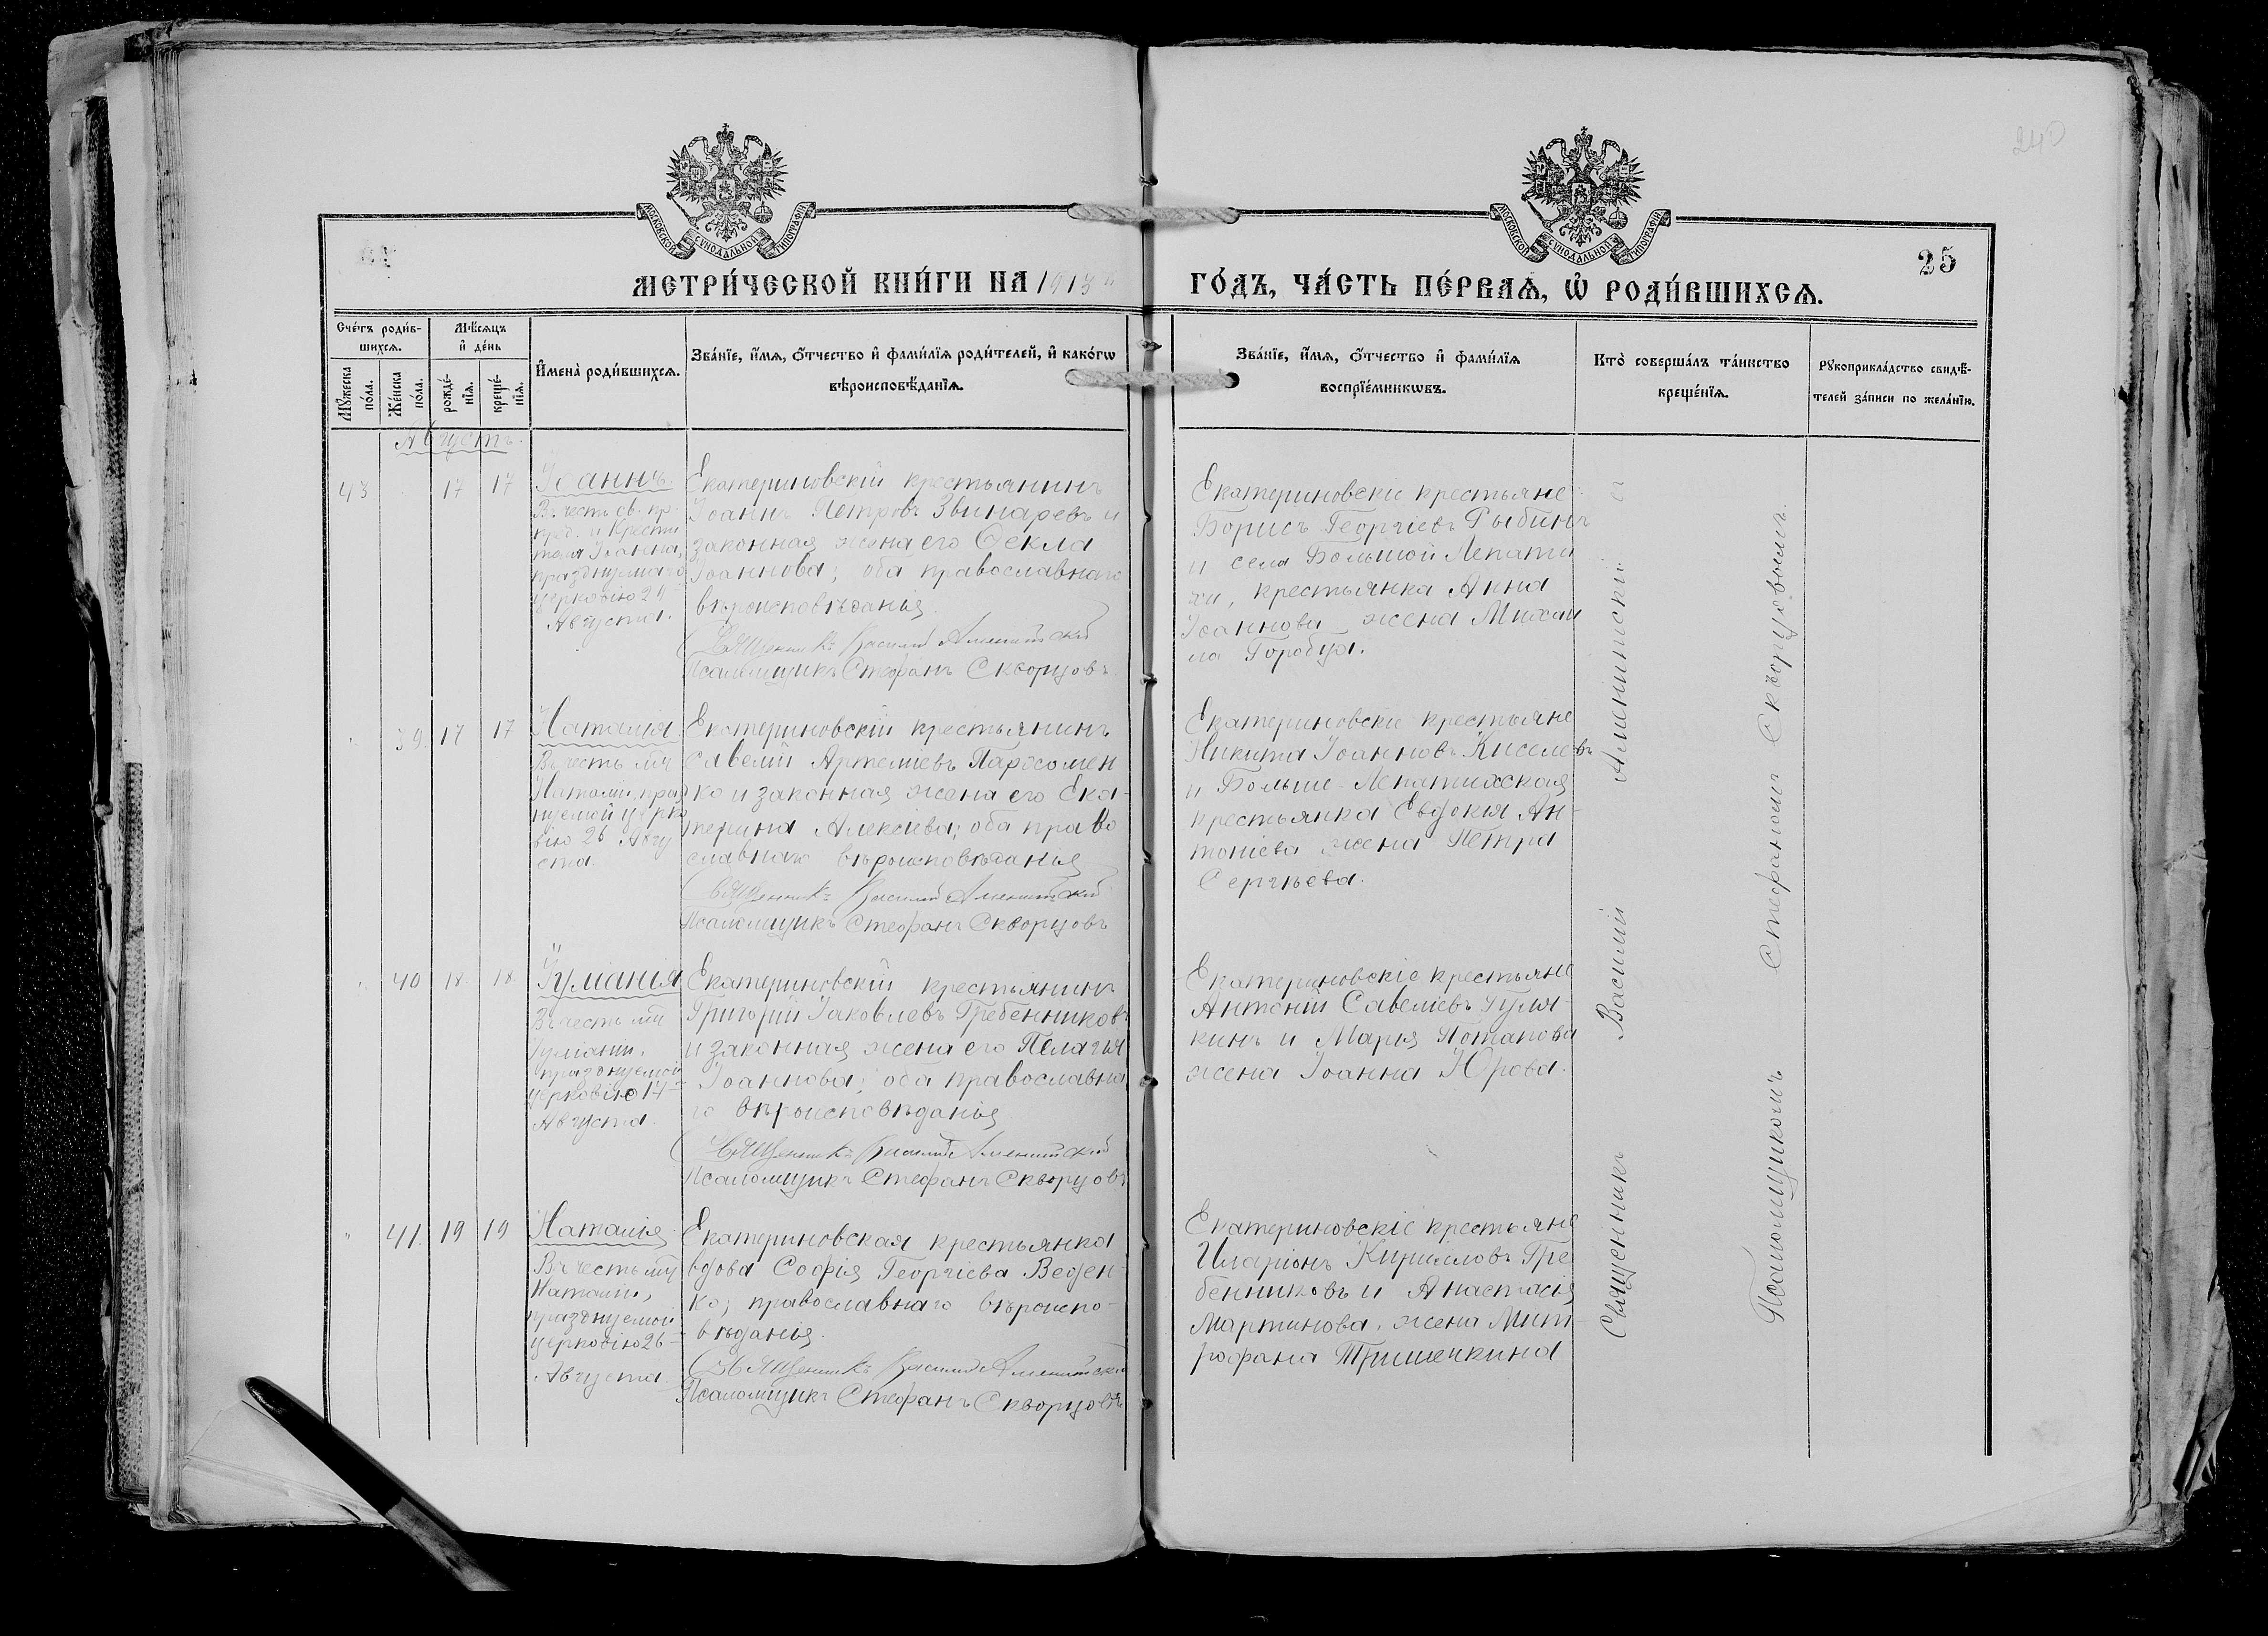 240
МОСКОВСКОЙ СѴНОДАЛЬНОЙ ТИПОГРАФІИ
МОСКОВСКОЙ СѴНОДАЛЬНОЙ ТИПОГРАФІИ
25
МЕТРИ́ЧЕСКОЙ КНИ́ГИ НА 1913
ГО́ДЪ, ЧА́СТЬ ПЕ́РВАѦ, Ѡ РОДИ́ВШИХСѦ.
Сче́тъ роди́в-
шихсѧ.
Мѣ́сѧцъ
и҆ де́нь
Мꙋ́жеска
по́ла.
Же́нска
по́ла.
рожде́-
нїѧ.
креще́-
нїѧ.
И҆мена̀ роди́вшихсѧ.
Зва́нїе, и҆́мѧ, ѻ҆́тчество и҆ фами́лїѧ роди́телей, и҆ како́гѡ
вѣроисповѣ́данїѧ.
Зва́нїе, и҆́мѧ, ѻ҆́тчество и҆ фами́лїѧ
воспрїе́мникѡвъ.
Кто̀ соверша́лъ та́инство
креще́нїѧ.
Рꙋкоприкла́дство свидѣ́-
телей за́писи по жела́нїю.
Августъ.
43
17
17
Іоаннъ.
Въ честь св. пр.
пред. и Крести
теля Іоанна,
празднуемаго
церковію 29
Августа.
Екатериновскій крестьянинъ
Іоаннъ Петровъ Звинаревъ и
законная жена его Ѳекла
Іоаннова; оба православнаго
вѣроисповѣданія.
Священникъ Василій Аменитскій
Псаломщикъ Стефанъ Скворцовъ
Екатериновскіе крестьяне
Борисъ Георгіевъ Рыбинъ
и села Большой Лепати
хи, крестьянка Анна
Іоаннова жена Михаи
ла Горобца.
39
17
17
Наталія
Въ честь мц
Наталіи, празд
нуемой церко
вію 26 Авгу
ста.
Екатериновскій крестьянинъ
Савелій Артеміевъ Пархомен
ко и законная жена его Ека-
терина Алексіева; оба право
славнаго вѣроисповѣданія
Священникъ Василій Аменитскій
Псаломщикъ Стефанъ Скворцовъ
Екатериновскіе крестьяне
Никита Іоанновъ Киселевъ
и Больше-Лепатихская
крестьянка Евдокія Ан-
тоніева жена Петра
Сергѣева.
40
18
18
Іуліанія
Въ честь мц
Іуліаніи,
празднуемой
церковію 17
Августа.
Екатериновскій крестьянинъ
Григорій Іаковлевъ Гребенниковъ
и законная жена его Пелагія
Іоаннова; оба православна
го вѣроисповѣданія
Священникъ Василій Аменитскій
Псаломщикъ Стефанъ Скворцовъ
Екатериновскіе крестьяне
Антоній Савеліевъ Гуля-
кинъ и Марія Потапова
жена Іоанна Юрова.
41
19
19
Наталія
Въ честь мц
Наталіи,
празднуемой
церковію 26
Августа.
Екатериновская крестьянка
вдова Софія Георгіева Веден-
ко; православнаго вѣроиспо-
вѣданія.
Священникъ Василій Аменитскій
Псаломщикъ Стефанъ Скворцовъ
Екатериновскіе крестьяне
Иларіонъ Кирилловъ Гре
бенниковъ и Анастасія
Мартинова, жена Мит-
рофана Тришечкина
Священникъ Василій Аменитскій съ
Псаломщикомъ Стефаномъ Скворцовымъ.